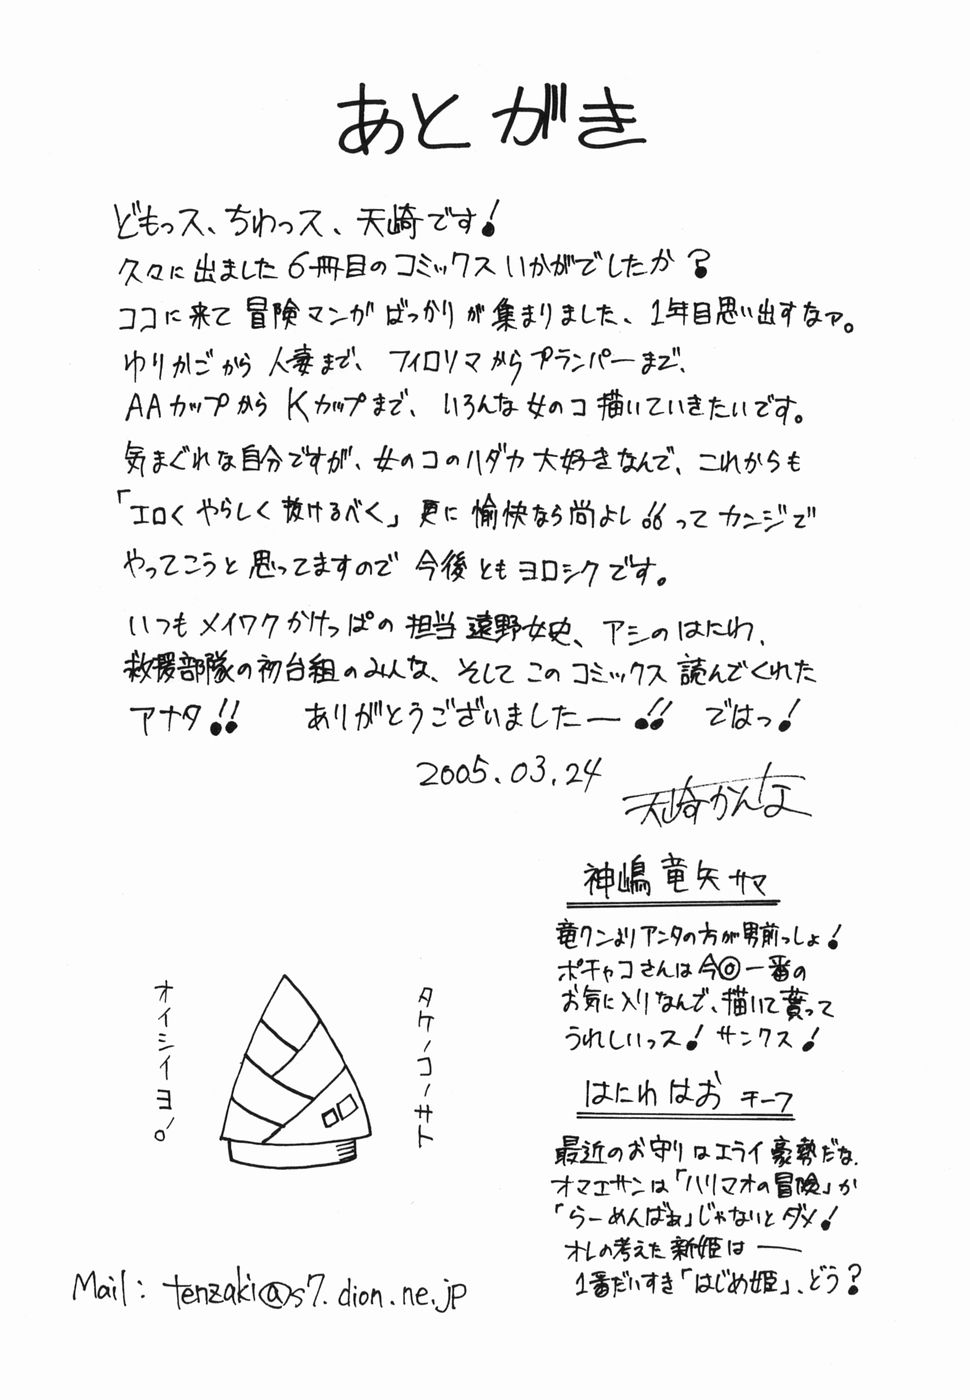 あとがき
どもっス、ちわっス、天崎です!
久々に出ました6冊目のコミックスいかがでしたか?
ココに来て冒険マンガばっかりが集まりました、1年目思い出すなァ。
ゆりかごから人妻まで、フィロリマからプランパーまで、
AAカップからKカップまで、いろんな女のコ描いていきたいです。
気まぐれな自分ですが、女のコのハダカ大好きなんで、これからも
「エロくやらしく抜けるべく」更に愉快なら尚よし!!ってカンジで
やってこうと思ってますので今後ともヨロシクです。
いつもメイワクかけっぱの担当遠野女史、アシのはにわ、
救援部隊の初台組のみんな、そしてこのコミックス読んでくれた
アナタ!! ありがとうございましたー!! ではっ!
2005.03.24
天崎かんな
神嶋竜矢サマ
竜クンよりアンタの方が男前っしょ!
ポチャコさんは今◎一番の
お気に入りなんで、描いて貰って
うれしいっス! サンクス!
はにわはお チーフ
最近のお守りはエライ豪勢だな、
オマエサンは「ハリマオの冒険」か
「らーめんばぁ」じゃないとダメ!
オレの考えた新姫は――
1番だいすき「はじめ姫」、どう?
タケノコノサト
オイシイヨ。
Mail: tenzaki@s7.dion.ne.jp